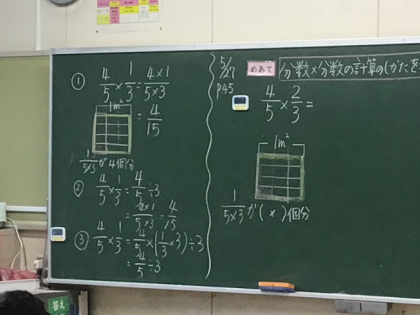 ① 4/5 × 1/3 = 4×1/5×3
= 4/15
1m²
1/5×3が4個分
② 4/5 × 1/3 = 4/5 ÷ 3
= 4×1/5×3 = 4/15
③ 4/5 × 1/3 = 4/5 × (1/3 × 3) ÷ 3
= 4/5 ÷ 3
5/27
P45
めあて
分数×分数の計算のしかたを
4/5 × 2/3 =
1m²
1/5×3が( × )個分
答え